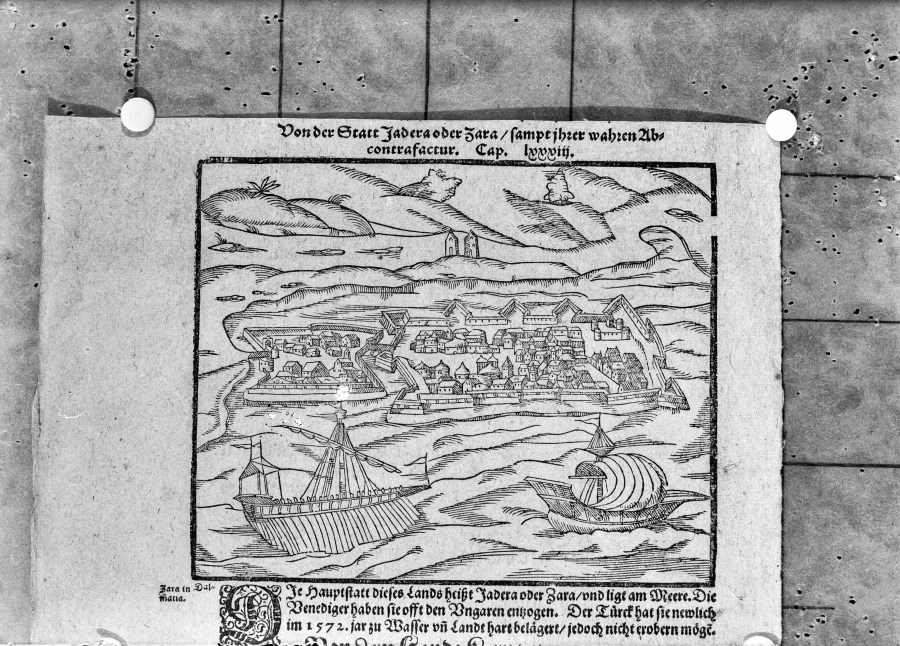 Von der Statt Jadera oder Zara / sampt jhrer wahren Ab⸗
contrafactur. Cap. lxxxiij.
Zara in Dal⸗
matia.
DIe Hauptstatt dieses Lands heißt Jadera oder Zara / vnd ligt am Meere. Die
Venediger haben sie offt den Vngaren entzogen. Der Türck hat sie newlich
im 1572. jar zu Wasser vñ Landt hart belägert / jedoch nicht erobern mögẽ.